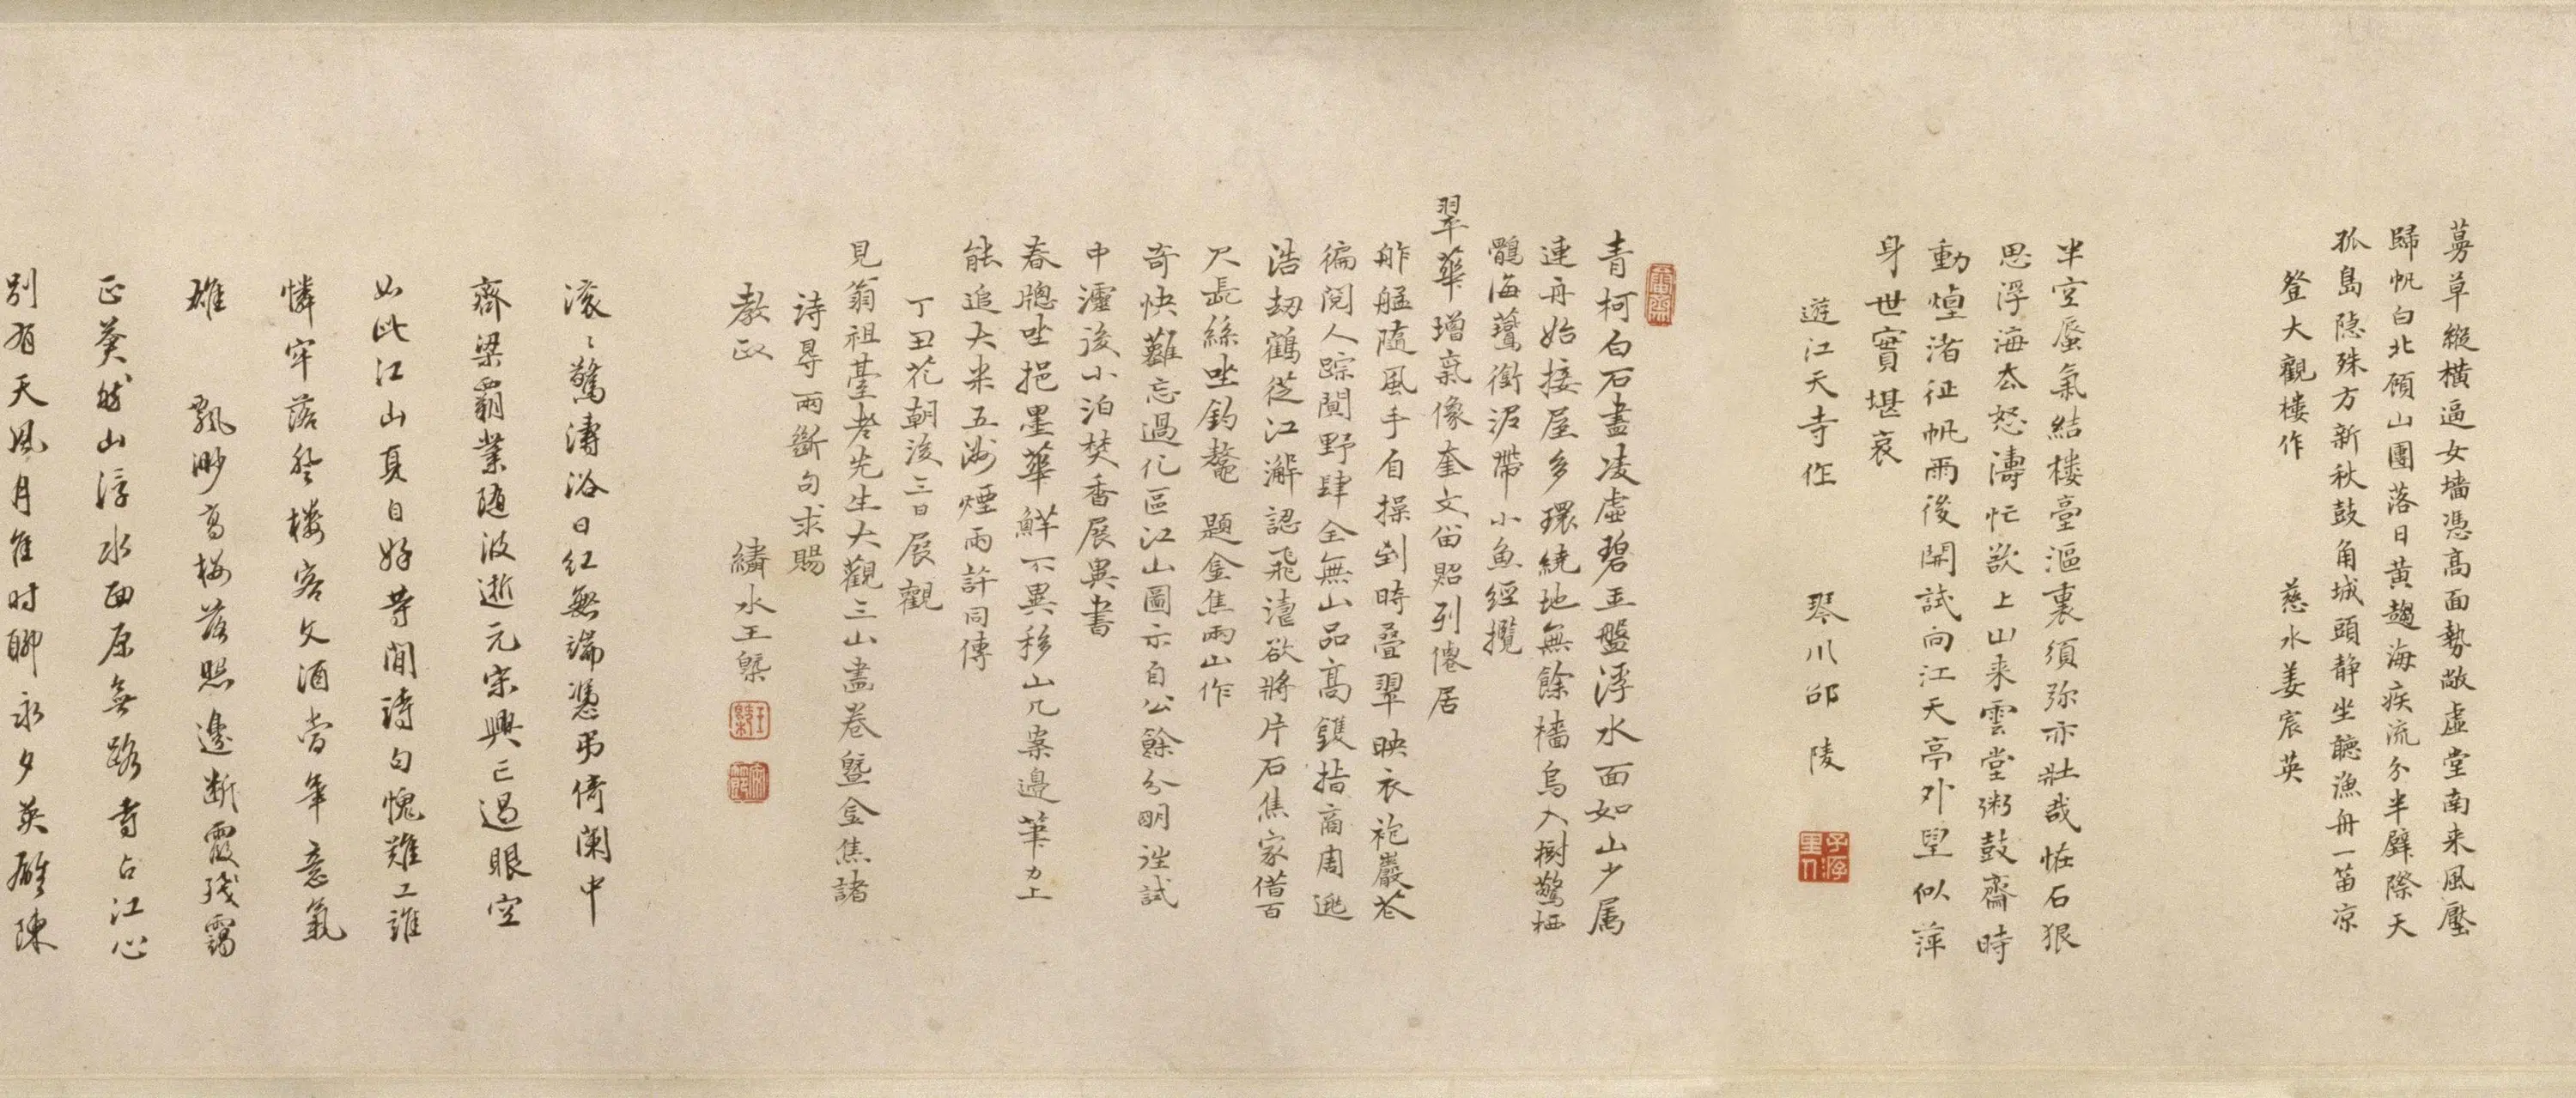 蔓草縱橫逼女墻憑高面勢敞虛堂南来風壓
歸帆白北顧山團落日黃趨海疾流分半壁際天
孤島隐殊方新秋鼓角城頭静坐聽漁舟一笛凉
登大觀楼作 慈水姜宸英
半空蜃氣結楼臺漚裏須弥亦壯哉恠石狠
思浮海厺怒濤忙欲上山来雲堂粥鼓齋時
動煙渚征帆雨後開試向江天亭外望似萍
身世實堪哀
遊江天寺作 琴川邵陵
青柯白石盡凌虛碧玉盤浮水面如山少属
連舟始接屋多環繞地無餘檣烏入樹驚栖
鶻海鷰銜泥帶小魚經攬
翠華增氣像奎文留照列僊居
舴艋隨風手自操到時疊翠映衣袍巖花
徧閱人踪闃野肆全無山品高鑊指商周逃
浩劫鶴從江澥認飛濤欲將片石焦家借百
尺長絲坐釣鼇 題金焦兩山作
奇快難忘過化區江山圖示自公餘分明逃試
中瀛後小泊焚香展異書
春牕坐挹墨華鮮不異移山几案邊筆力上
能追大米五洲煙雨許同傳
丁丑花朝後三日展觀
見翁祖臺老先生大觀三山畫卷曁金焦諸
詩尋兩斷句求賜
教政 繡水王槩
滚〻驚濤浴日紅無端憑弔倚闌中
齊梁霸業随波逝元宋興亡過眼空
如此江山真自好等閒詩句愧難工誰
憐牢落登樓客文酒當年意氣
雄 飄渺高楼落照邊断霞残靄
正蒼然山浮水面原無路寺占江心
別有天風月隹时聊永夕英雄陳